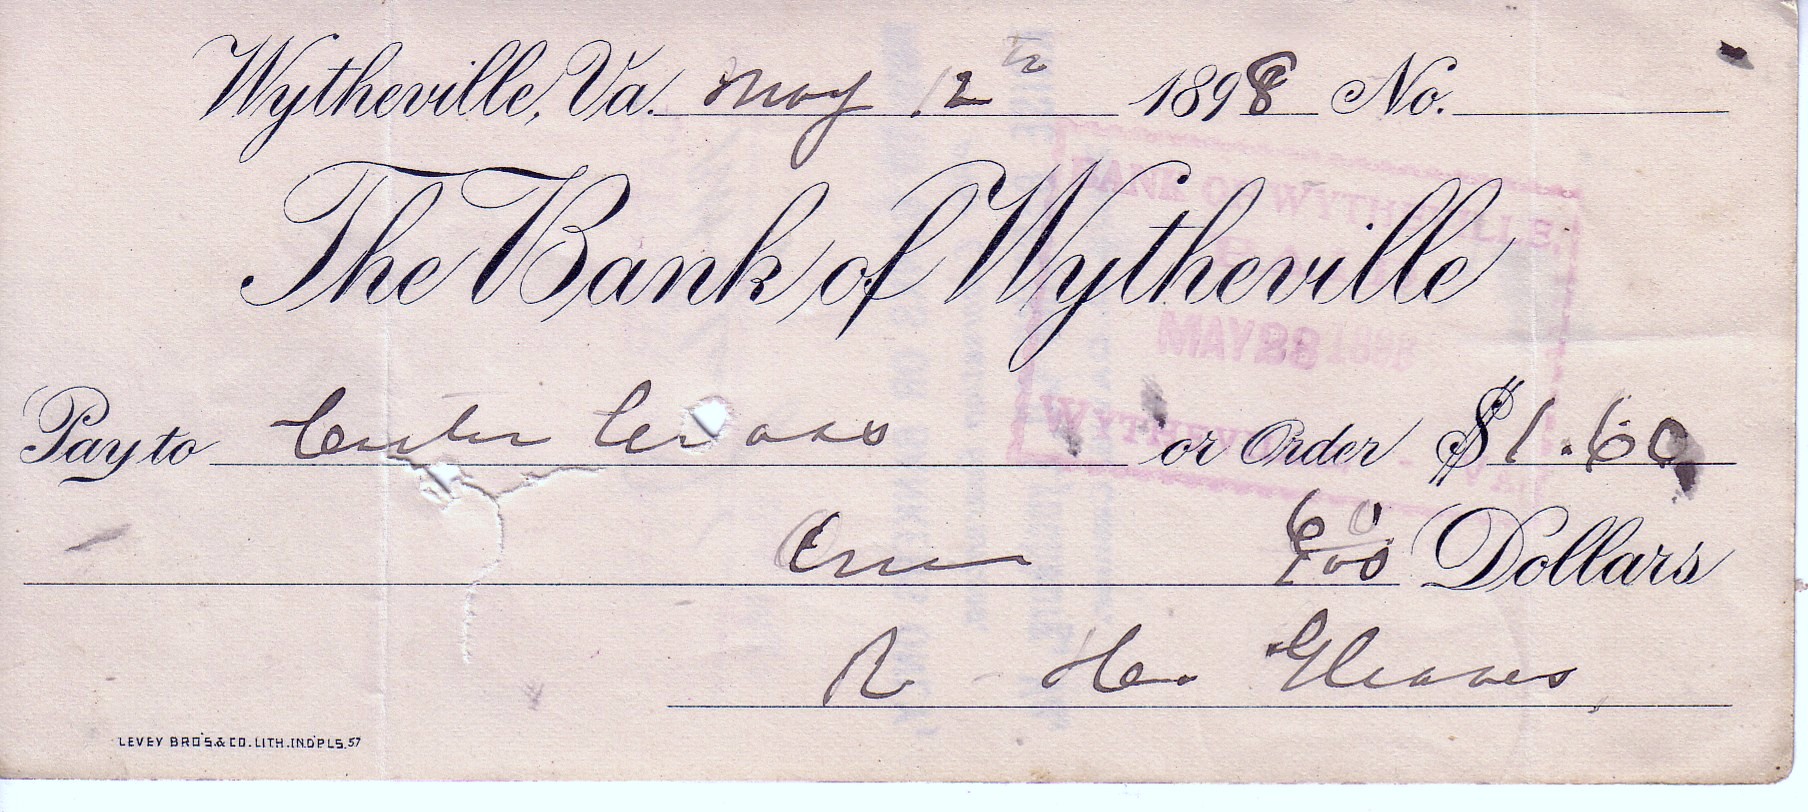 Wytheville, Va. May 12th 1898 No.
The Bank of Wytheville
BANK OF WYTHEVILLE.
MAY 28 1898
WYTHEVILLE, VA.
Pay to or Order $1.60
One 60/100 Dollars
R. H. Gleaves
LEVEY BRO'S.& CO. LITH. IND'PLS. 57